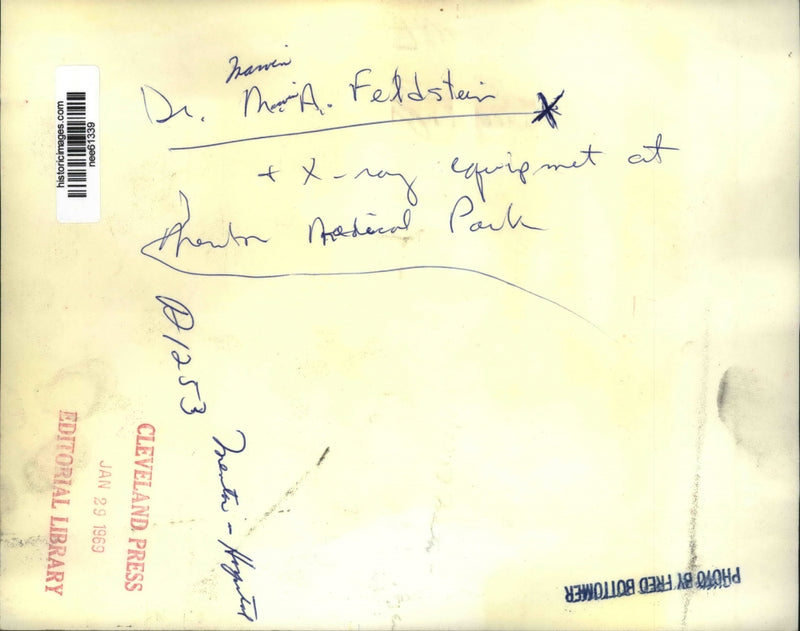 Marvin
Dr. Marvin A. Feldstein X
+ X-ray equipmet at
Mentor Medical Park
historicimages.com
nee61339
D1253
Mentor - Hospital
CLEVELAND PRESS
JAN 29 1969
EDITORIAL LIBRARY
PHOTO BY FRED BOTTOMER